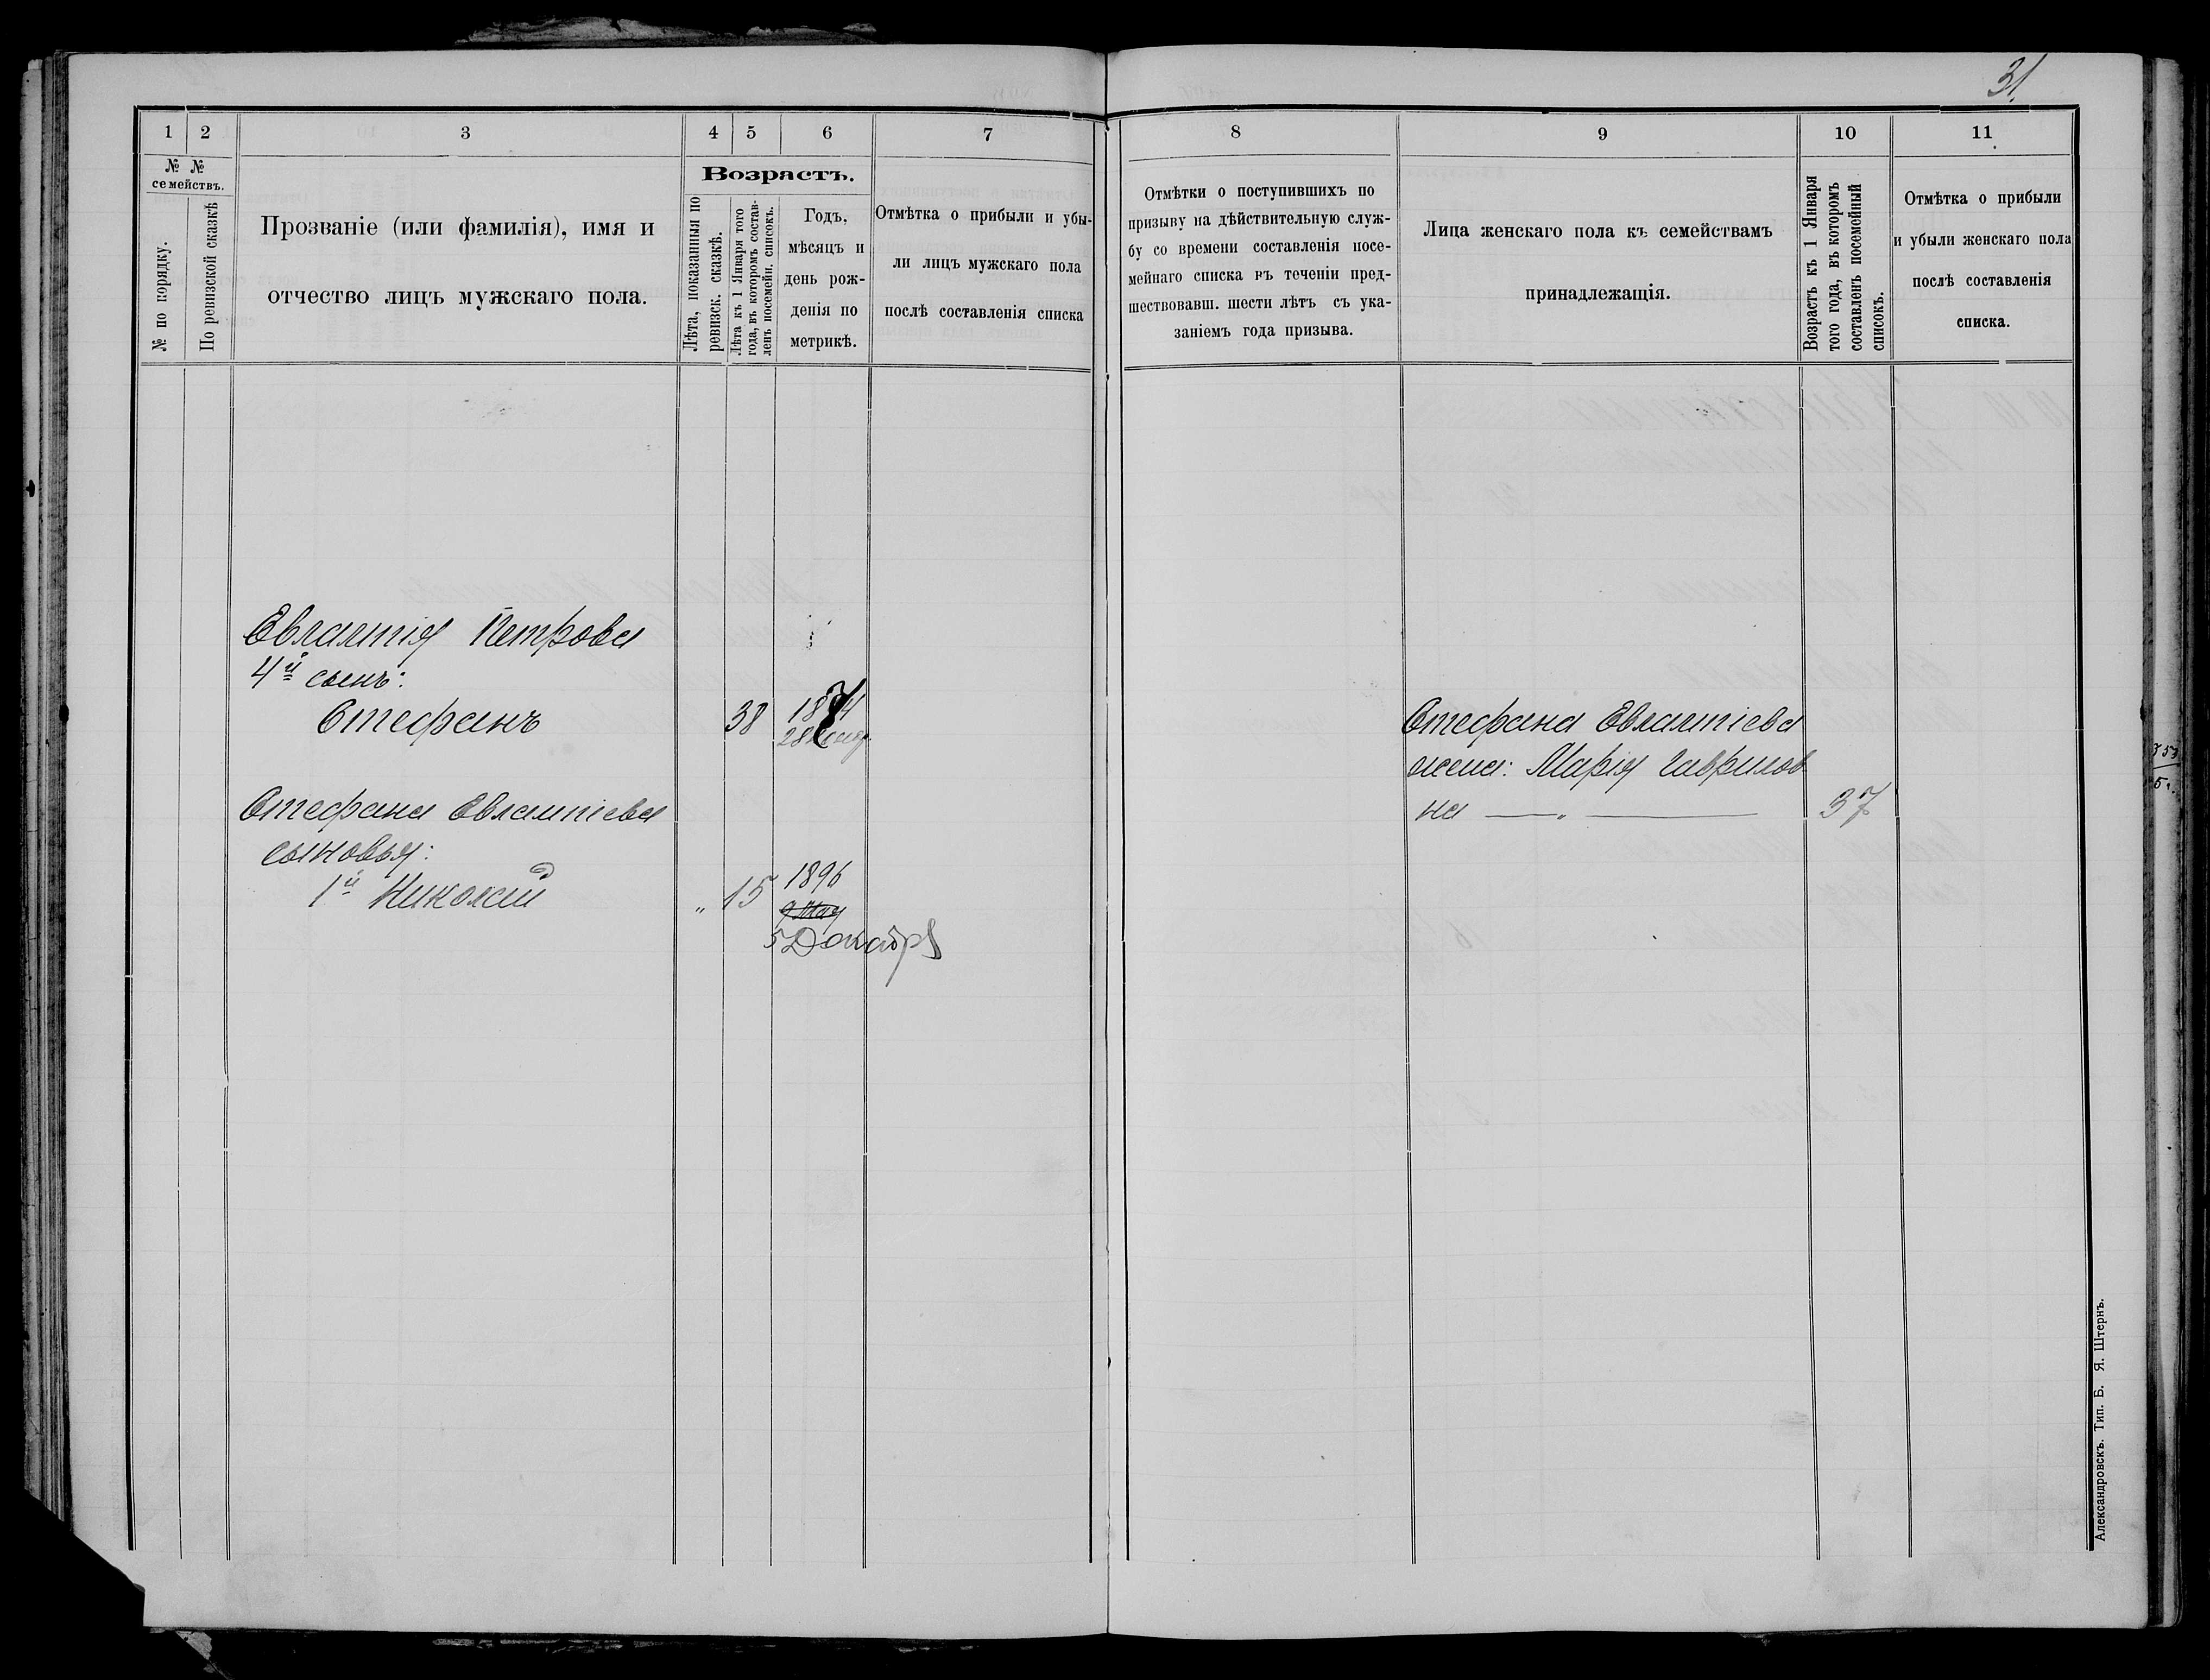 31
1
2
3
4
5
6
7
№ №
семействъ.
№ по порядку.
По ревизской сказкѣ
Прозваніе (или фамилія), имя и
отчество лицъ мужскаго пола.
Возрастъ.
Лѣта, показанныя по
ревизск. сказкѣ.
Лѣта къ 1 Января того
года, въ которомъ состав-
ленъ посемейн. списокъ.
Годъ,
мѣсяцъ и
день рож-
денія по
метрикѣ.
Отмѣтка о прибыли и убы-
ли лицъ мужскаго пола
послѣ составленія списка
Евлампія Петрова
4й сынъ:
Стефанъ 38 1874
28
Стефана Евлампіева
сыновья:
1й Николай „ 15 1896
9 Мая
5 Декабря
8
9
10
11
Отмѣтки о поступившихъ по
призыву на дѣйствительную служ-
бу со времени составленія посе-
мейнаго списка въ теченіи пред-
шествовавш. шести лѣтъ съ ука-
заніемъ года призыва.
Лица женскаго пола къ семействамъ
принадлежащія.
Возрастъ къ 1 Января
того года, въ которомъ
составленъ посемейный
списокъ.
Отмѣтка о прибыли
и убыли женскаго пола
послѣ составленія
списка.
Стефана Евлампіева
жена: Марія Гаврилов
на — „ — 37
Александровскъ. Тип. Б. Я. Штернъ.